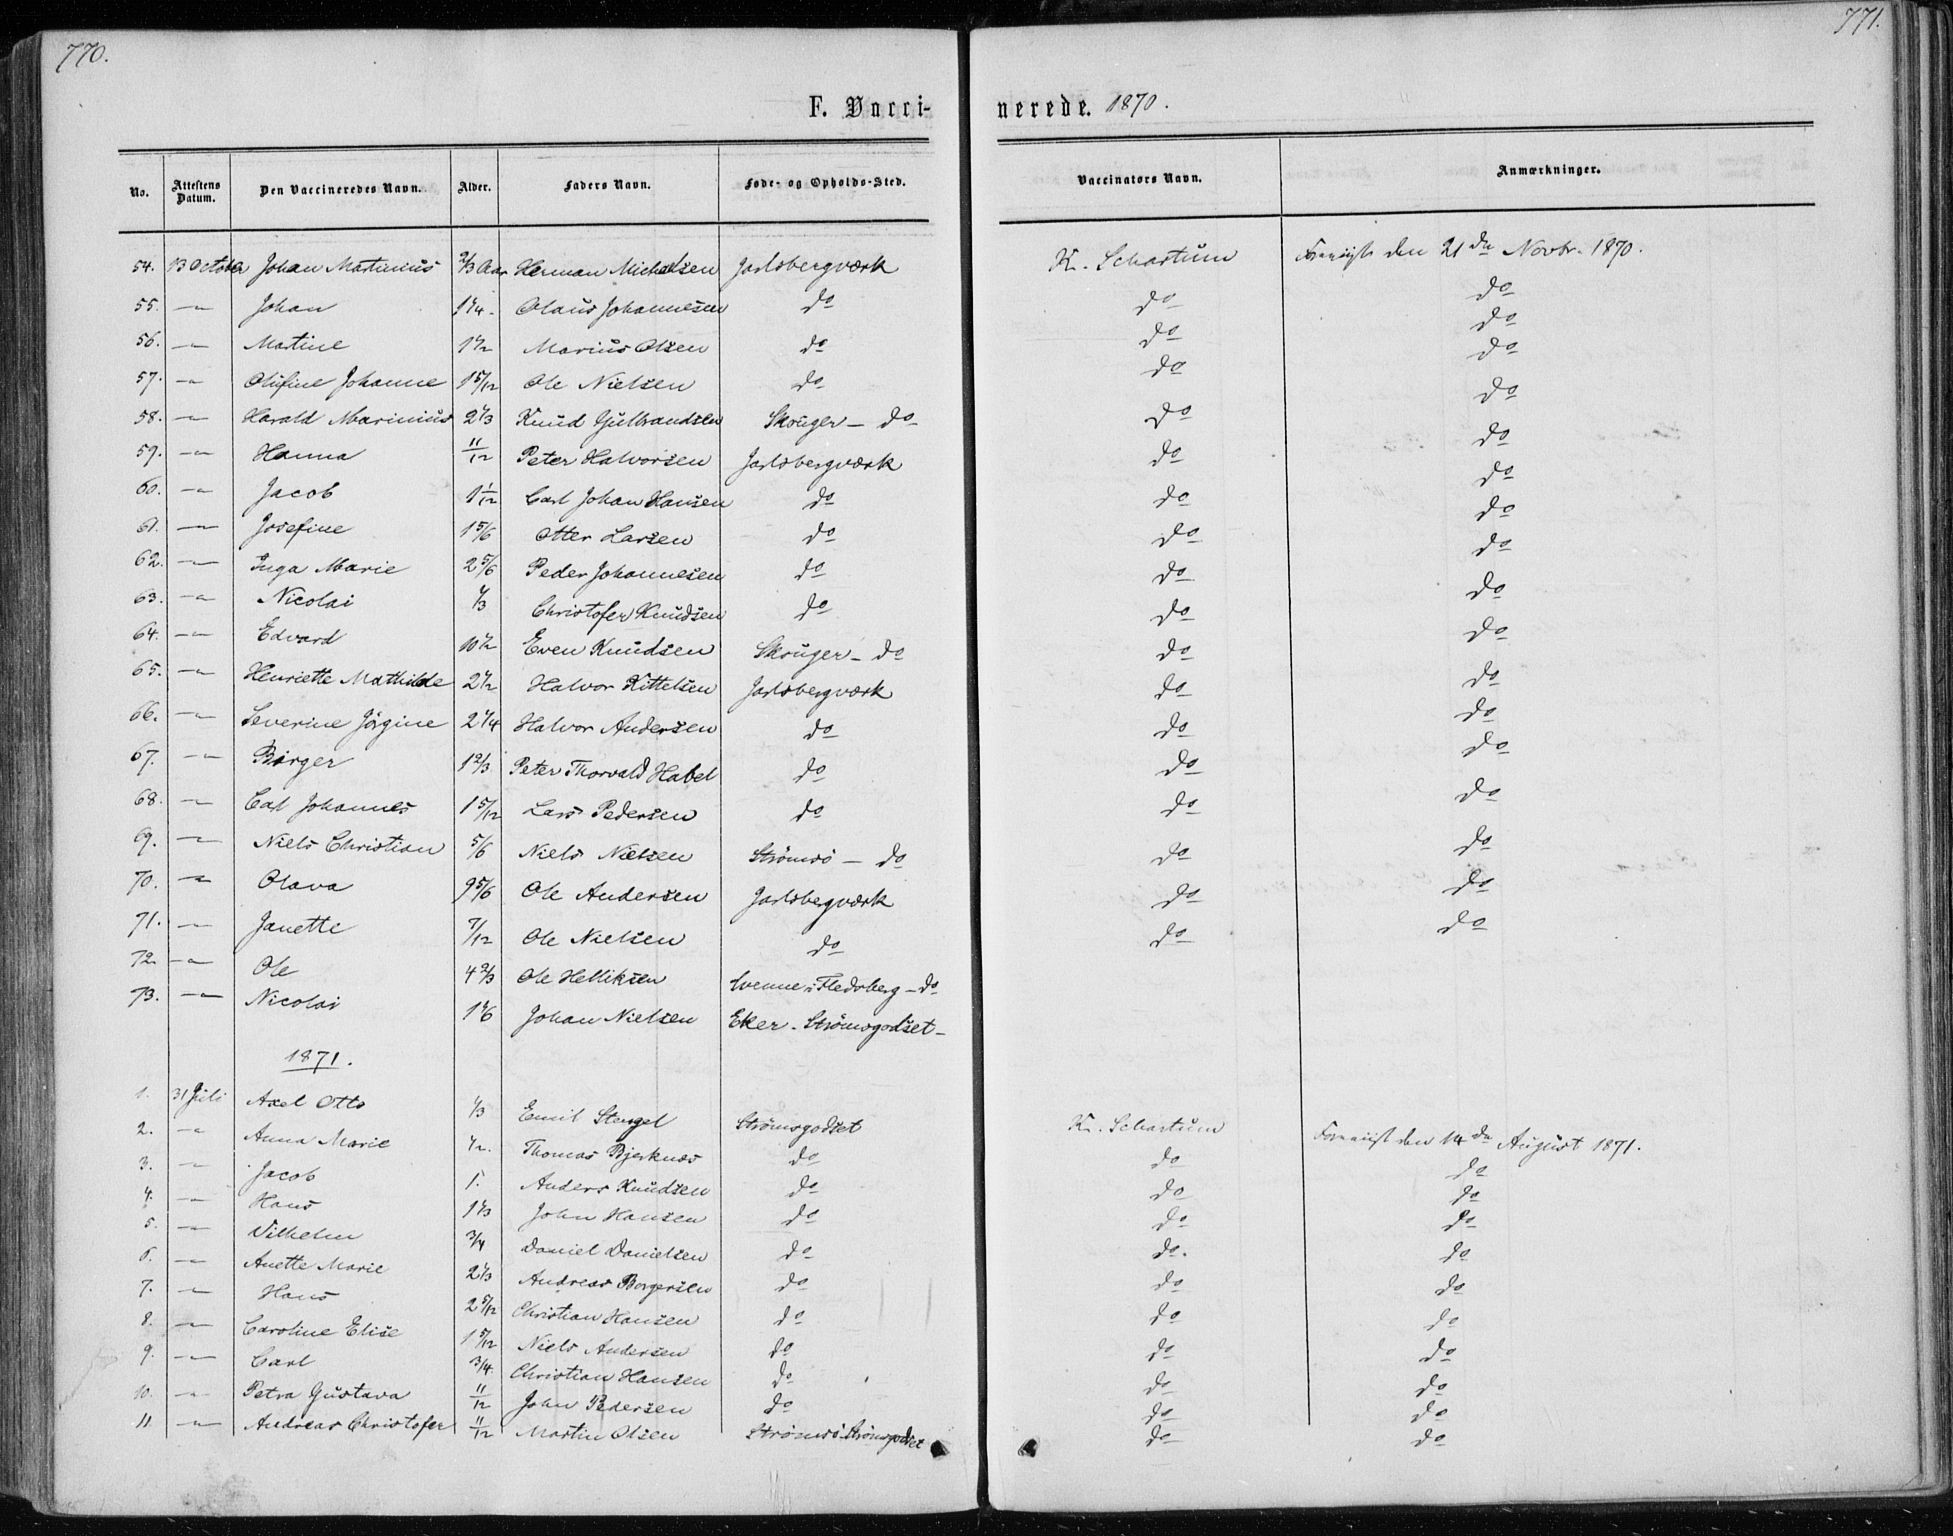 770.
771.
F. Vacci-
nerede. 1870.
No. Attestens Datum. Den Vaccineredes Navn. Alder. Faders Navn. Føde- og Opholds-Sted. Vaccinators Navn. Anmærkninger.
54. 13 October Johan Martinius 2/3 Aar Herman Michelsen Jarlsbergværk K. Schartum den 21de Novbr. 1870.
55. —"— Johan 1 1/4. Olaus Johannesen do do do
56. —"— Martine 1 1/2 Marius Olsen do do do
57. —"— Olufine Johanne 1 5/12 Ole Nielsen do do do
58. —"— Harald Marinius 2 1/3 Knud Gulbrandsen Skouger — do do do
59. —"— Hanna 11/12 Peter Halvorsen Jarlsbergværk do do
60. —"— Jacob 1 1/12 Carl Johan Hansen do do do
61. —"— Josefine 1 5/6 Otter Larsen do do do
62. —"— Inga Marie 2 5/6 Peder Johannesen do do do
63. —"— Nicolai 1/3 Christofer Knudsen do do do
64. —"— Edvard 10 1/2 Even Knudsen Skouger — do do do
65. —"— Henriette Mathilde 2 1/2 Halvor Kittelsen Jarlsbergværk do do
66. —"— Severine Jørgine 2 1/4 Halvor Andersen do do do
67. —"— Birger 1 2/3 Peter Thorvald Habel do do do
68. —"— Carl Johannes 1 5/12 Lars Pedersen do do do
69. —"— Niels Christian 5/6 Niels Nielsen Strömsö — do do do
70. —"— Olava 9 5/6 Ole Andersen Jarlsbergværk do do
71. —"— Janette 7/12 Ole Nielsen do do do
72. —"— Ole 4 2/3 Ole Helliksen i Fledsberg — do
73. —"— Nicolai 1 1/6 Johan Nielsen Eker - Strömsgodset —
1871.
1. 31 Juli Axel Otto 1/3 Emil Stengel Strömsgodset K. Schartum den 14de August 1871.
2. —"— Anna Marie 1/2. Thomas Bjerknæs do do do
3. —"— Jacob 1. Anders Knudsen do do do
4. —"— Hans 1 1/3 John Hansen do do do
5. —"— Vilhelm 3/4 Daniel Danielsen do do. do
6. —"— Anette Marie 2 1/3 Andreas Borgersen do do do
7. —"— Hans 2 5/12 Christian Hansen do do do
8. —"— Caroline Elise 1 5/12 Niels Andersen do do do
9. —"— Carl 3/4 Christian Hansen do do do
10. —"— Petra Gustava 11/12 John Pedersen do do do
11. —"— Andreas Christofer 11/12 Martin Olsen Strömsö Strömsgodset do do